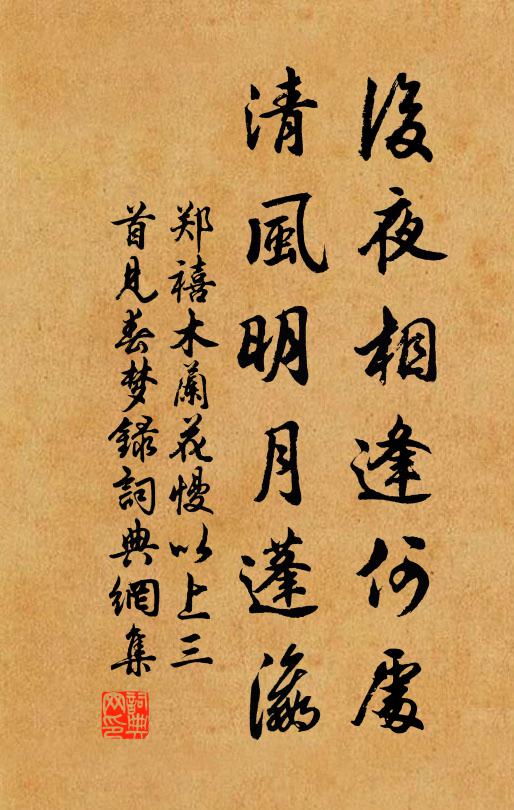 後夜相逢何處
清風明月蓬瀛
郑禧木蘭花慢以上三
首見春梦録詞典網集
詞典
网印